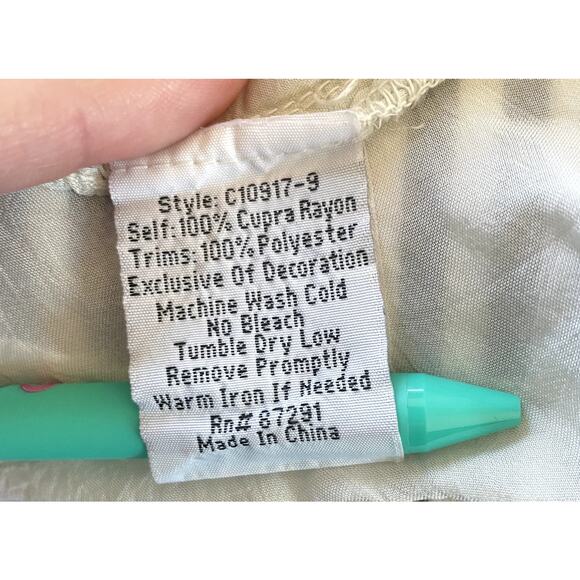 Style: C10917-9
Self: 100% Cupra Rayon
Trims: 100% Polyester
Exclusive Of Decoration
Machine Wash Cold
No Bleach
Tumble Dry Low
Remove Promptly
Warm Iron If Needed
Rn# 87291
Made In China